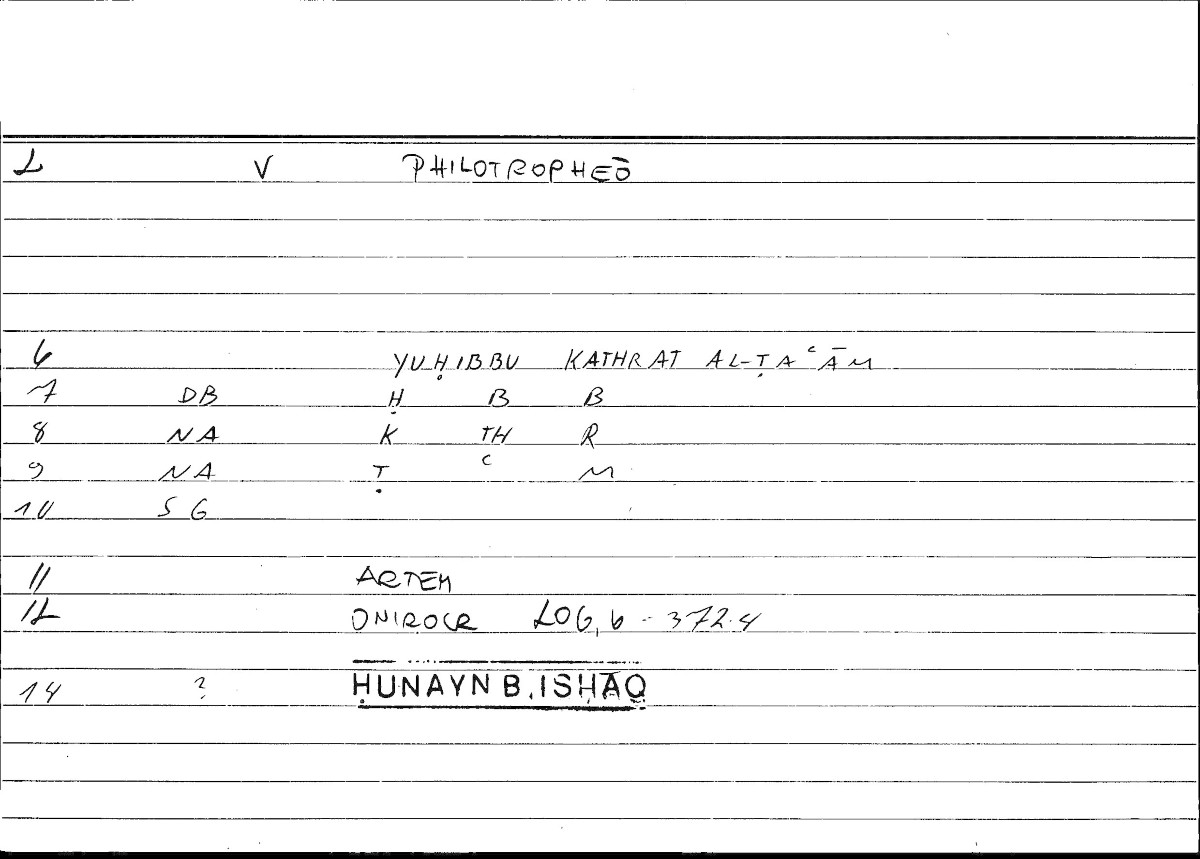 2 V PHILOTROPHEŌ
6 YUḤIBBU KATHRAT AL-ṬAʿĀM
7 DB Ḥ B B
8 NA K TH R
9 NA Ṭ ʿ M
10 SG
11 ARTEM
12 ONIROCR 206,6 - 372.4
14 ? ḤUNAYN B. ISḤĀQ